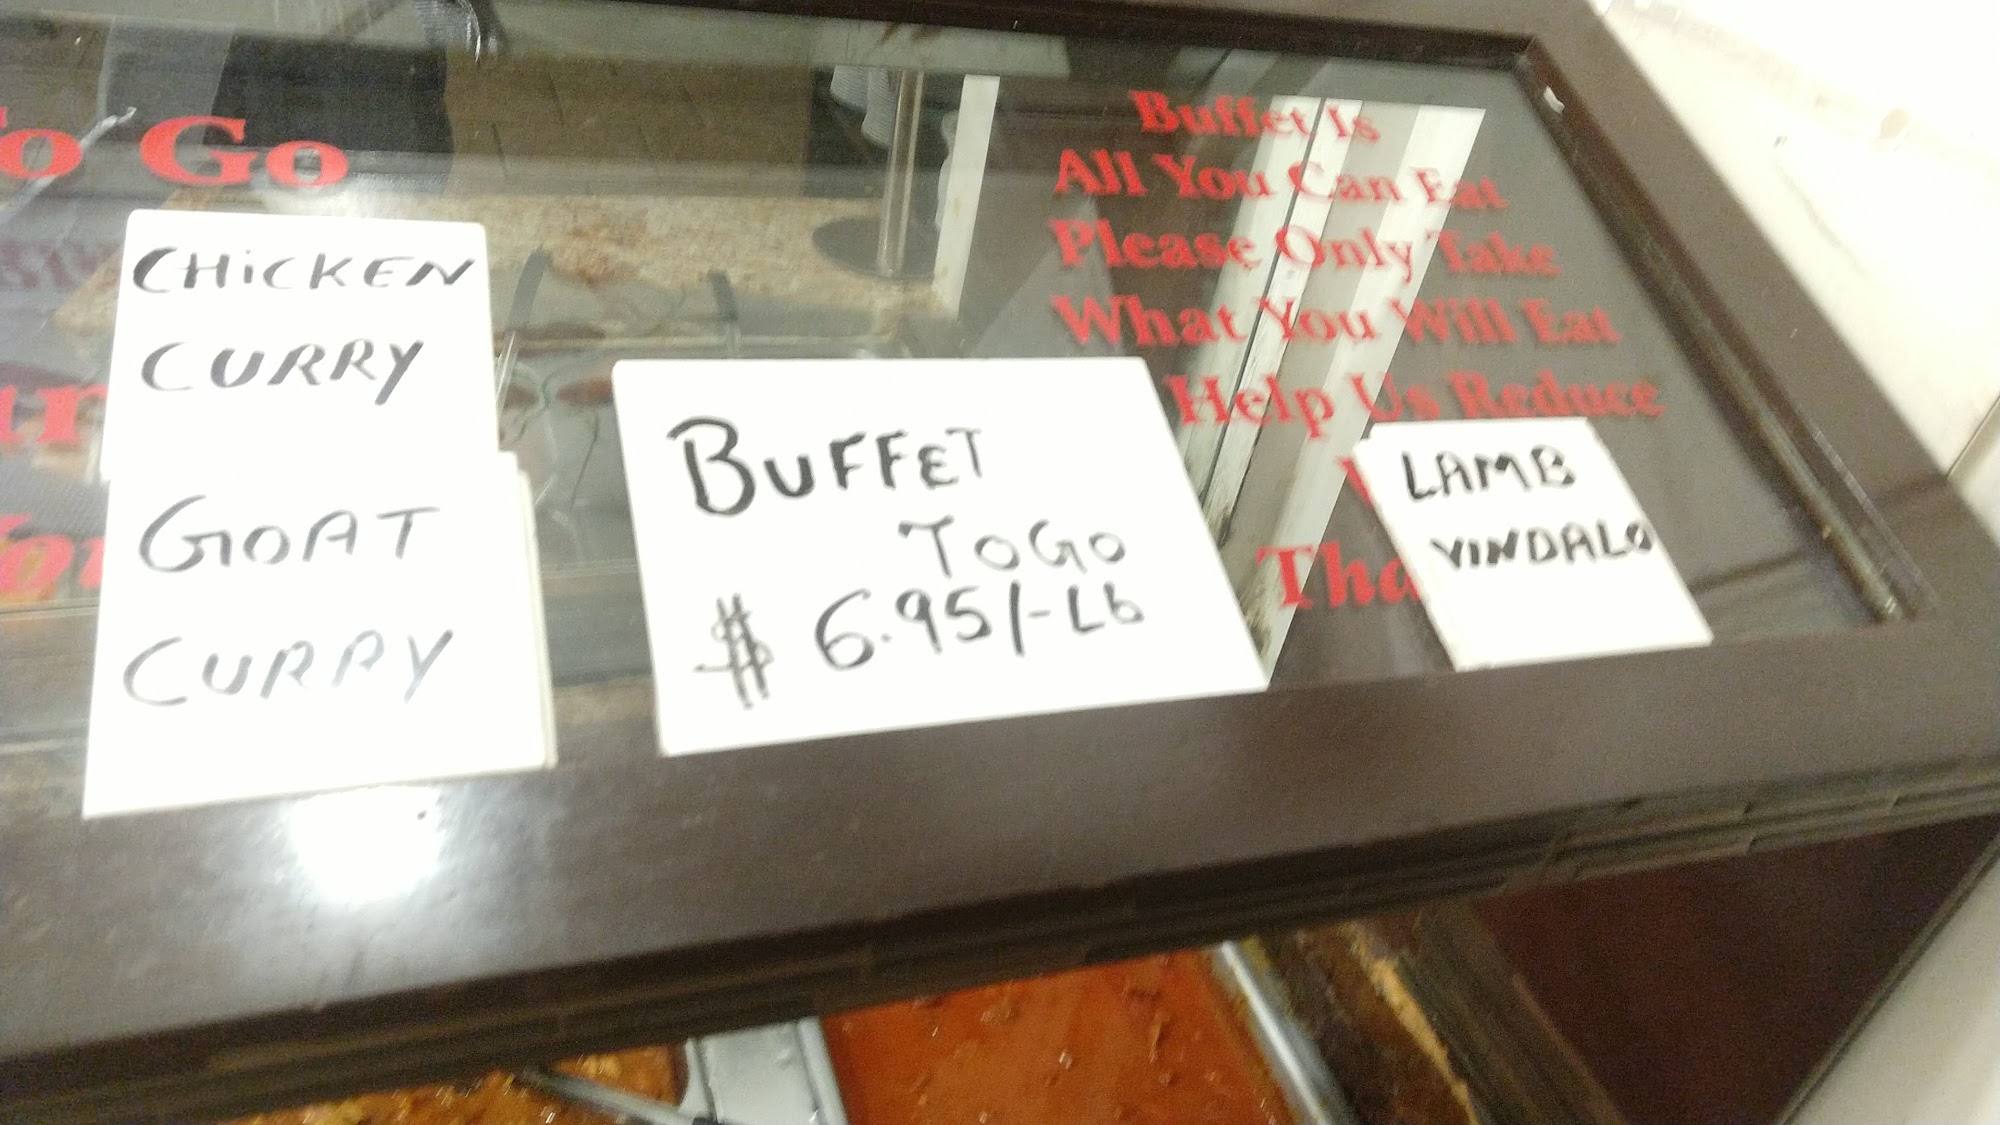 To Go
CHICKEN
CURRY
GOAT
CURRY
BUFFET
TO GO
$ 6.95/-Lb
Buffet Is
All You Can Eat
Please Only Take
What You Will Eat
Help Us Reduce
LAMB
VINDALO